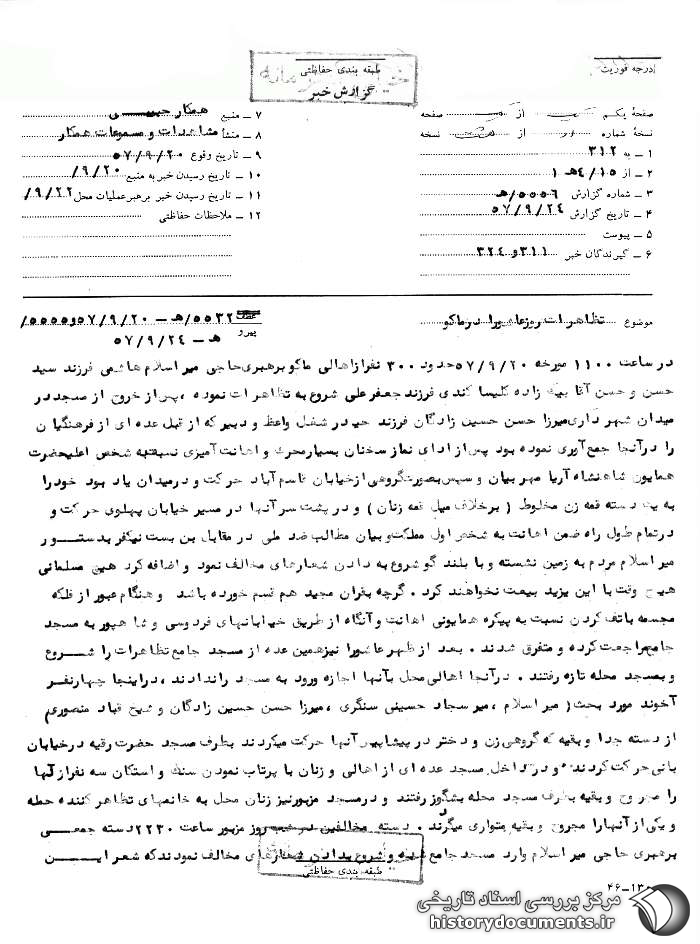 درجه فوریت
طبقه بندی حفاظتی
گزارش خبر
صفحه یکم از صفحه
نسخهٔ شماره از نسخه
۱ ـ به ۳۱۲
۲ ـ از ۱۵/۴هـ ۱
۳ ـ شماره گزارش ۵۵۵۶/هـ
۴ ـ تاریخ گزارش ۵۷/۹/۲۴
۵ ـ پیوست
۶ ـ گیرندگان خبر ۳۱۱ و ۳۲۴
۷ ـ منبع همکار حبیبی
۸ ـ منشأ مشاهدات و مسموعات همکار
۹ ـ تاریخ وقوع ۵۷/۹/۲۰
۱۰ ـ تاریخ رسیدن خبر به منبع ۹/۲۰/
۱۱ ـ تاریخ رسیدن خبر برهبر عملیات محل ۹/۲۲/
۱۲ ـ ملاحظات حفاظتی
موضوع تظاهرات روز عاشورا در ماکو
عطف ۵۵۳۲/هـ ـ ۵۷/۹/۲۰ و ۵۵۵۵/
پیرو هـ ـ ۵۷/۹/۲۴
در ساعت ۱۱۰۰ مورخه ۵۷/۹/۲۰ حدود ۳۰۰ نفر از اهالی ماکو برهبری حاجی میر اسلام هاشمی فرزند سید
حسن و حسن آقا بیک زاده کلیسا کندی فرزند جعفرعلی شروع به تظاهرات نموده ، پس از خروج از مسجد در
میدان شهرداری میرزا حسن حسین زادگان فرزند حیدر شغل واعظ و دبیر که از قبل عده ای از فرهنگیان
را در آنجا جمع آوری نموده بود پس از ادای نماز سخنان بسیار محرک و اهانت آمیزی نسبت به شخص اعلیحضرت
همایون شاهنشاه آریا مهر بیان و سپس بصورت گروهی از خیابان قاسم آباد حرکت و در میدان یاد بود خود را
به یک دسته قمه زن مخلوط ( برخلاف میل قمه زنان ) و در پشت سر آنها در مسیر خیابان پهلوی حرکت و
در تمام طول راه ضمن اهانت به شخص اول مملکت و بیان مطالب ضد ملی در مقابل بن بست نیکفر بدستور
میر اسلام مردم به زمین نشسته و با بلند گو شروع به دادن شعارهای مخالف نمود و اضافه کرد هیچ مسلمانی
هیچ وقت با این یزید بیعت نخواهند کرد . گرچه بقران مجید هم قسم خورده باشد و هنگام عبور از فلکه
مجسمه با تف کردن نسبت به پیکره همایونی اهانت و آنگاه از طریق خیابانهای فردوسی و شاهپور به مسجد
جامع مراجعت کرده و متفرق شدند . بعد از ظهر عاشورا نیز همین عده از مسجد جامع تظاهرات را شروع
و بمسجد محله تازه رفتند . در آنجا اهالی محل بآنها اجازه ورود به مسجد را ندادند ، در اینجا چهارنفر
آخوند مورد بحث ( میر اسلام ، میر سجاد حسینی سنگری ، میرزا حسن حسین زادگان و شیخ قباد منصوری )
از دسته جدا و بقیه که گروهی زن و دختر در پیشاپیش آنها حرکت میکردند بطرف مسجد حضرت رقیه در خیابان
بانی حرکت کردند و در داخل مسجد عده ای از اهالی و زنان با پرتاب نمودن سنگ و استکان سه نفر از آنها
را مجروح و بقیه بطرف مسجد محله بشگوز رفتند و در مسجد مزبور نیز زنان محل به خانمهای تظاهر کننده حمله
و یکی از آنها را مجروح و بقیه متواری میگردند . دسته مخالفین در شب روز مزبور ساعت ۲۲۳۰ دسته جمعی
برهبری حاجی میر اسلام وارد مسجد جامع شده و شروع بدادن شعارهای مخالف نمودند که شعر این
طبقه بندی حفاظتی
۴۶-۱۳
مرکز بررسی اسناد تاریخی
historydocuments.ir